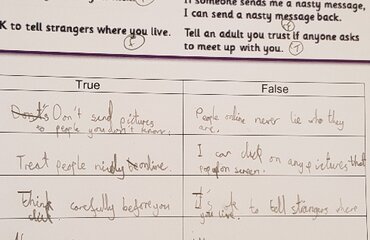 If someone sends me a nasty message,
I can send a nasty message back.
K to tell strangers where you live.
Tell an adult you trust if anyone asks
to meet up with you.
True
False
Don't send pictures
to people you don't know.
People online never lie who they
are.
Treat people nicely online.
I can click on any pictures that
pop up on screen.
Think carefully before you
click.
It's ok to tell strangers where
you live.